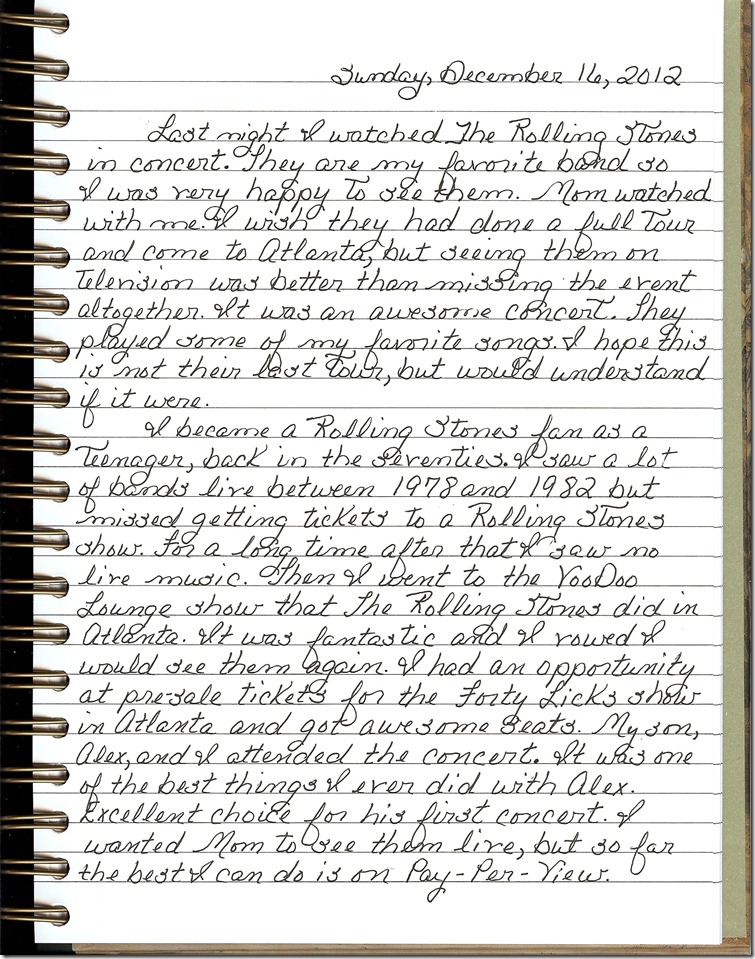 Sunday, December 16, 2012
Last night I watched The Rolling Stones
in concert. They are my favorite band so
I was very happy to see them. Mom watched
with me. I wish they had done a full Tour
and come to Atlanta, but seeing them on
Television was better than missing the event
altogether. It was an awesome concert. They
played some of my favorite songs. I hope this
is not their last Tour, but would understand
if it were.
I became a Rolling Stones fan as a
Teenager, back in the seventies. I saw a lot
of bands live between 1978 and 1982 but
missed getting tickets to a Rolling Stones
show. For a long time after that I saw no
live music. Then I went to the VooDoo
Lounge show that The Rolling Stones did in
Atlanta. It was fantastic and I vowed I
would see them again. I had an opportunity
at pre-sale tickets for the Forty Licks show
in Atlanta and got awesome seats. My son,
Alex, and I attended the concert. It was one
of the best things I ever did with Alex.
Excellent choice for his first concert. I
wanted Mom to see them live, but so far
the best I can do is on Pay-Per-View.